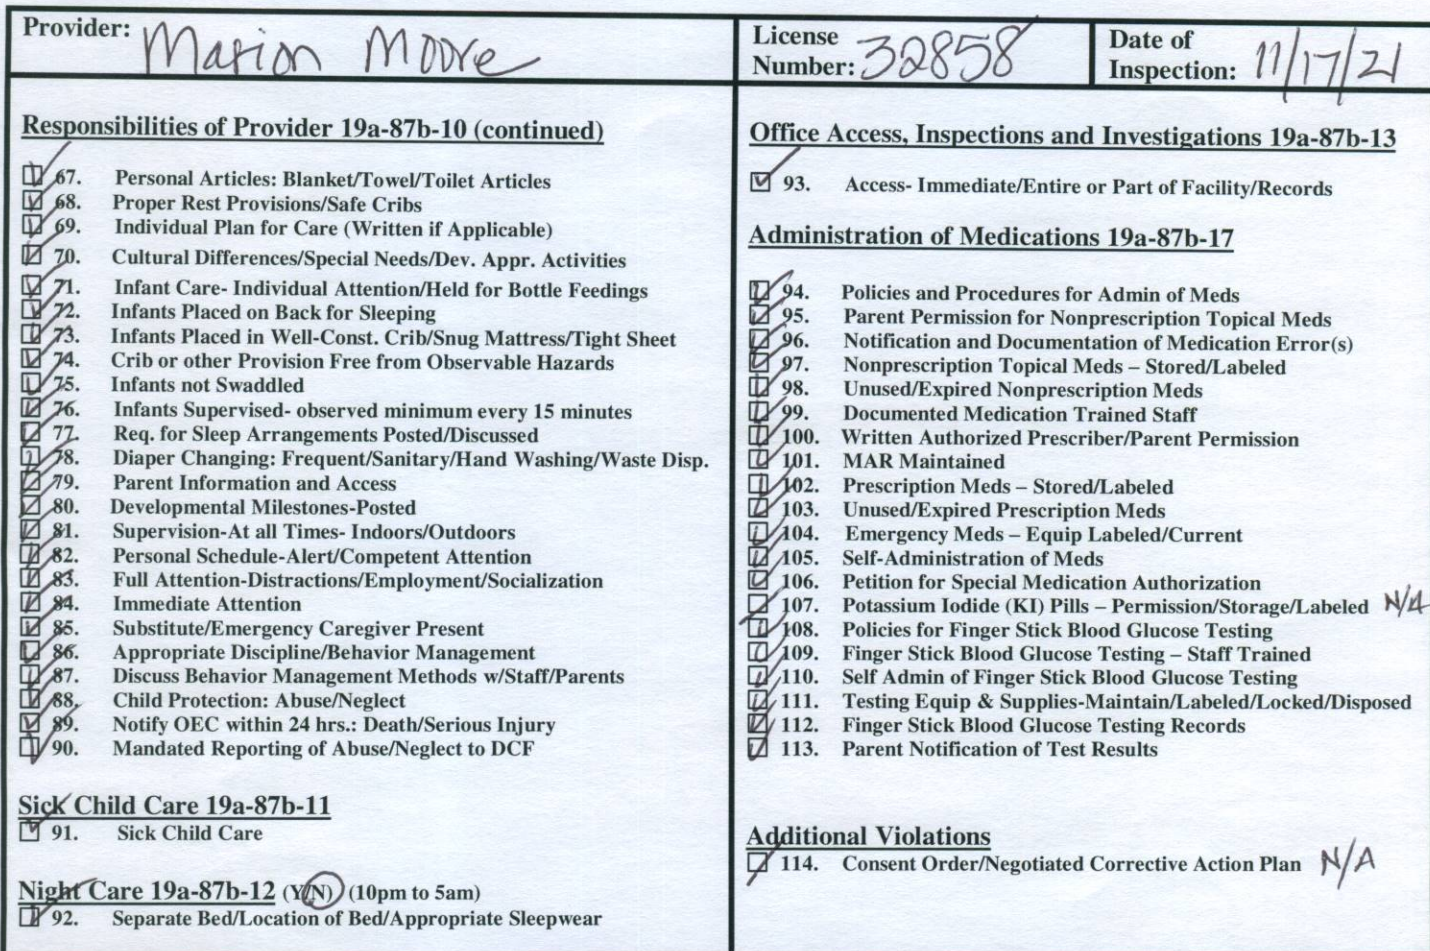 Provider: Marion Moore
License Number: 32858
Date of Inspection: 11/17/21
Responsibilities of Provider 19a-87b-10 (continued)
67. Personal Articles: Blanket/Towel/Toilet Articles
68. Proper Rest Provisions/Safe Cribs
69. Individual Plan for Care (Written if Applicable)
70. Cultural Differences/Special Needs/Dev. Appr. Activities
71. Infant Care- Individual Attention/Held for Bottle Feedings
72. Infants Placed on Back for Sleeping
73. Infants Placed in Well-Const. Crib/Snug Mattress/Tight Sheet
74. Crib or other Provision Free from Observable Hazards
75. Infants not Swaddled
76. Infants Supervised- observed minimum every 15 minutes
77. Req. for Sleep Arrangements Posted/Discussed
78. Diaper Changing: Frequent/Sanitary/Hand Washing/Waste Disp.
79. Parent Information and Access
80. Developmental Milestones-Posted
81. Supervision-At all Times- Indoors/Outdoors
82. Personal Schedule-Alert/Competent Attention
83. Full Attention-Distractions/Employment/Socialization
84. Immediate Attention
85. Substitute/Emergency Caregiver Present
86. Appropriate Discipline/Behavior Management
87. Discuss Behavior Management Methods w/Staff/Parents
88. Child Protection: Abuse/Neglect
89. Notify OEC within 24 hrs.: Death/Serious Injury
90. Mandated Reporting of Abuse/Neglect to DCF
Sick Child Care 19a-87b-11
91. Sick Child Care
Night Care 19a-87b-12 (Y/N) (10pm to 5am)
92. Separate Bed/Location of Bed/Appropriate Sleepwear
Office Access, Inspections and Investigations 19a-87b-13
93. Access- Immediate/Entire or Part of Facility/Records
Administration of Medications 19a-87b-17
94. Policies and Procedures for Admin of Meds
95. Parent Permission for Nonprescription Topical Meds
96. Notification and Documentation of Medication Error(s)
97. Nonprescription Topical Meds – Stored/Labeled
98. Unused/Expired Nonprescription Meds
99. Documented Medication Trained Staff
100. Written Authorized Prescriber/Parent Permission
101. MAR Maintained
102. Prescription Meds – Stored/Labeled
103. Unused/Expired Prescription Meds
104. Emergency Meds – Equip Labeled/Current
105. Self-Administration of Meds
106. Petition for Special Medication Authorization
107. Potassium Iodide (KI) Pills – Permission/Storage/Labeled N/A
108. Policies for Finger Stick Blood Glucose Testing
109. Finger Stick Blood Glucose Testing – Staff Trained
110. Self Admin of Finger Stick Blood Glucose Testing
111. Testing Equip & Supplies-Maintain/Labeled/Locked/Disposed
112. Finger Stick Blood Glucose Testing Records
113. Parent Notification of Test Results
Additional Violations
114. Consent Order/Negotiated Corrective Action Plan N/A